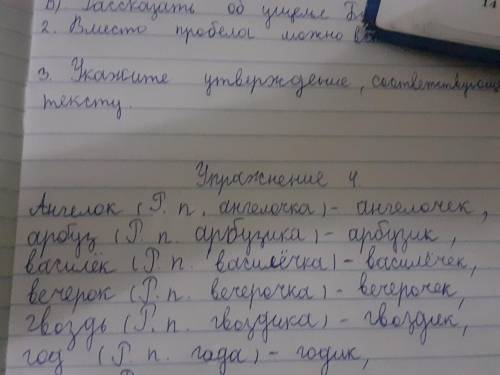 б) Рассказать об ущелье
2. Вместо пробела можно
3. Укажите утверждение, соответствующ
тексту.
Упражнение 4.
Ангелок (Р. п. ангелочка) - ангелочек,
арбуз (Р. п. арбузика) - арбузик,
василёк (Р. п. василёчка) - василёчек,
вечерок (Р. п. вечерочка) - вечерочек,
гвоздь (Р. п. гвоздика) - гвоздик,
год (Р. п. года) - годик,